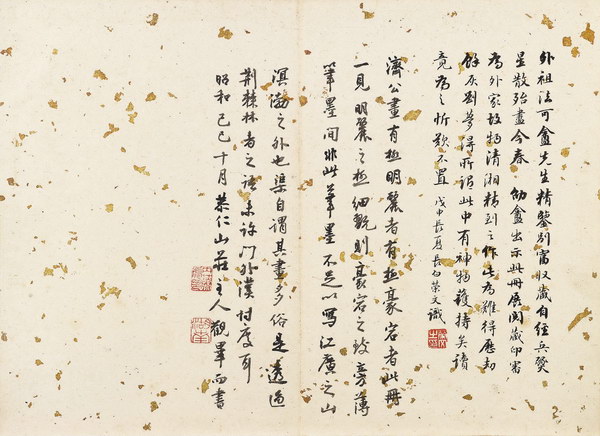 外祖法可盦先生精鑒別富收藏自經兵燹
星散殆盡今春勉盦出示此冊展閱藏印審
為外家故物清湘精到之作此為難得歷劫
餘灰劉夢得所謂此中有神物護持矣讀
竟為之忻歎不置戊申長夏長白榮文識
濟公畫有極明麗者有極豪宕者此冊
一見明麗之極細翫則豪宕之致旁薄
筆墨間非此筆墨不足以寫江廣之山
溟渤之外也渠自謂其畫多俗是透過
荆棘林者之語未許門外漢討度耳
昭和己巳十月恭仁山莊主人觀畢而書